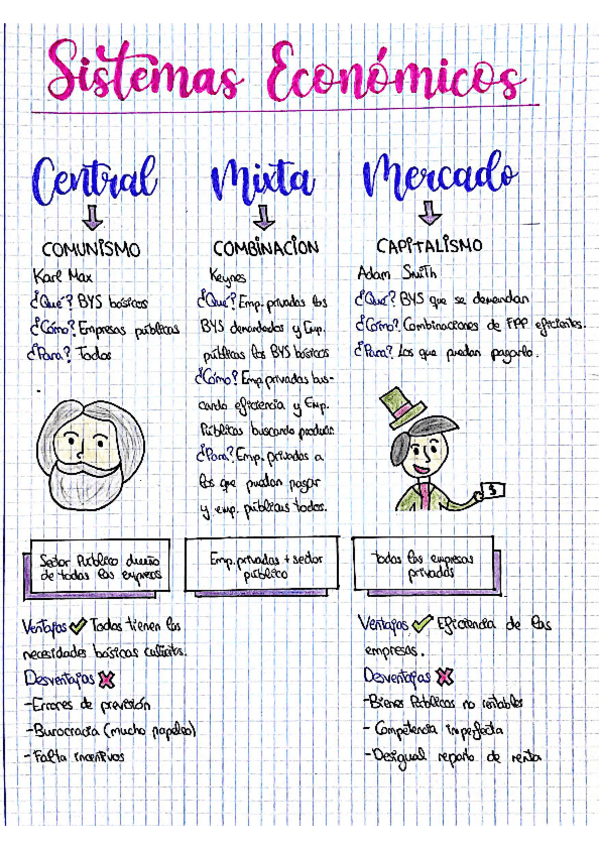 Sistemas Económicos
Central
COMUNISMO
Karl Max
¿Qué? BYS básicos
¿Cómo? Empresas públicas
¿Para? Todos
Sector Público dueño
de todas las empresas
Ventajas Todos tienen las
necesidades básicas cubiertas.
Desventajas
-Errores de previsión
-Burocracia (mucho papeleo)
-Falta incentivos
Mixta
COMBINACION
Keynes
¿Qué? Emp. privadas los
BYS demandados y Emp.
públicas los BYS básicos
¿Cómo? Emp. privadas bus-
cando eficiencia y Emp.
Públicas buscando producir.
¿Para? Emp. privadas a
los que puedan pagar
y emp. públicas todos.
Emp. privadas + sector
público
Mercado
CAPITALISMO
Adam Smith
¿Qué? BYS que se demandan
¿Cómo? Combinaciones de FPP eficientes.
¿Para? Los que puedan pagarlo.
$
todas las empresas
privadas
Ventajas Eficiencia de las
empresas.
Desventajas
-Bienes Públicos no rentables
-Competencia imperfecta
-Desigual reparto de renta